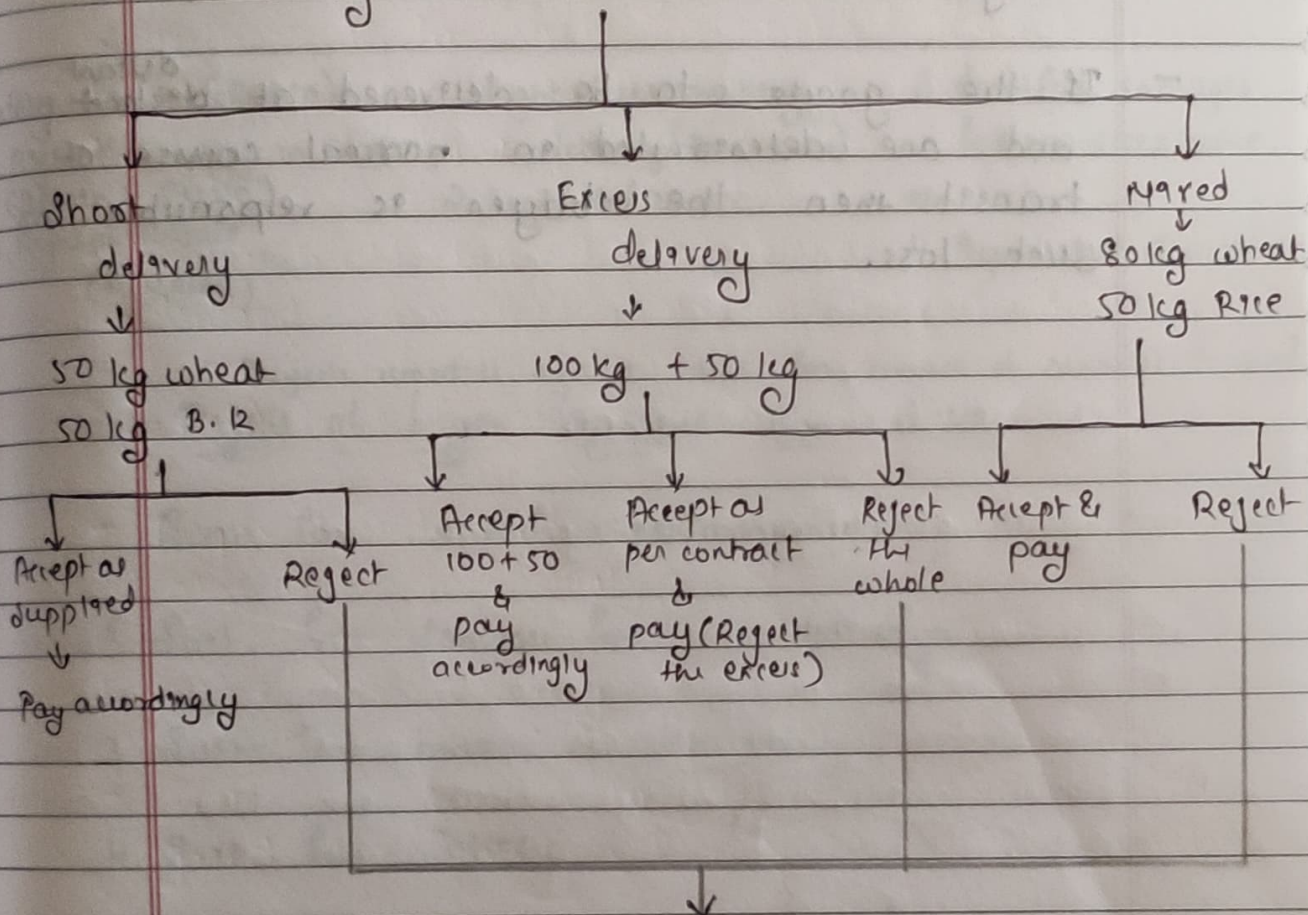 Short
delivery
50 kg wheat
50 kg B. R
Accept as
supplied
Pay accordingly
Reject
Excess
delivery
100 kg + 50 kg
Accept
100 + 50
&
pay
accordingly
Accept as
per contract
&
pay (Reject
the excess)
Reject
the
whole
Mixed
80 kg wheat
50 kg Rice
Accept &
pay
Reject